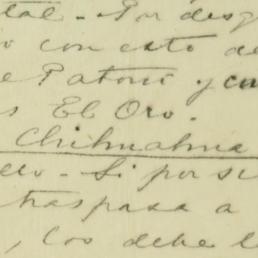 tal. Por desg
o con esto de
e Patoni y cu
s El Oro.
Chihuahua
eco. Si por su
traspasa a
, los debe l